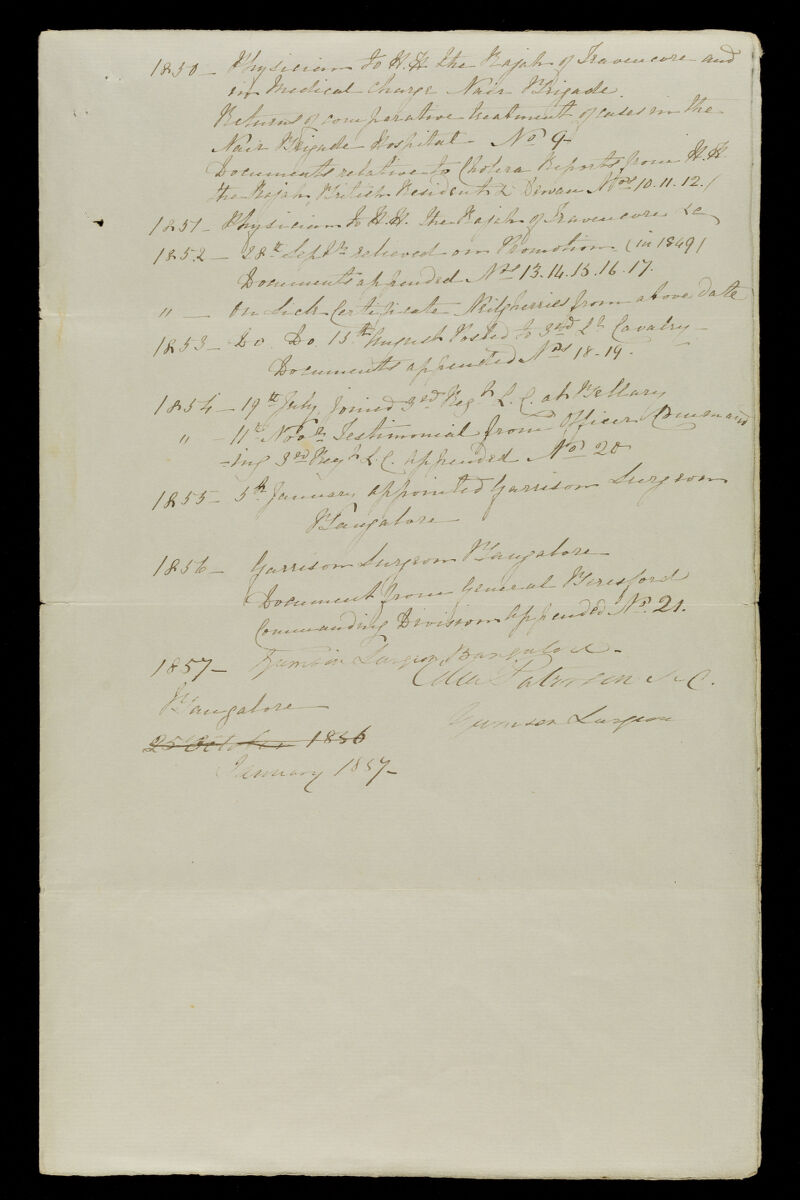 1850 - Physician to H.H. the Rajah of Travencore and
in Medical Charge Nair Brigade.
Returns of comparative treatment of cases in the
Nair Brigade Hospital - No 9
Documents relative to Cholera Reports from H.H.
the Rajah, British Resident & Dewan Nos 10. 11. 12. /
1851 - Physician to H.H. the Rajah of Travencore &c
1852 - 28th Septr relieved on Promotion (in 1849)
Documents appended Nos 13. 14. 15. 16. 17.
" - On Sick Certificate Nilgherries from above date
1853 - Do Do. 15th August Posted to 3rd Lt Cavalry -
Documents appended Nos 18. 19.
1854 - 19th July Joined 3rd Regt L. C. at Bellary
" 11th Novr Testimonial from Officer Command
=ing 3rd Regt L. C. appended No 20
1855 - 5th January appointed Garrison Surgeon
Bangalore
1856 - Garrison Surgeon Bangalore
Document from General Beresford
Commanding Division appended No. 21.
1857 - Garrison Surgeon Bangalore -
Paterson
Bangalore
Garrison Surgeon
25 October 1856
January 1857 -